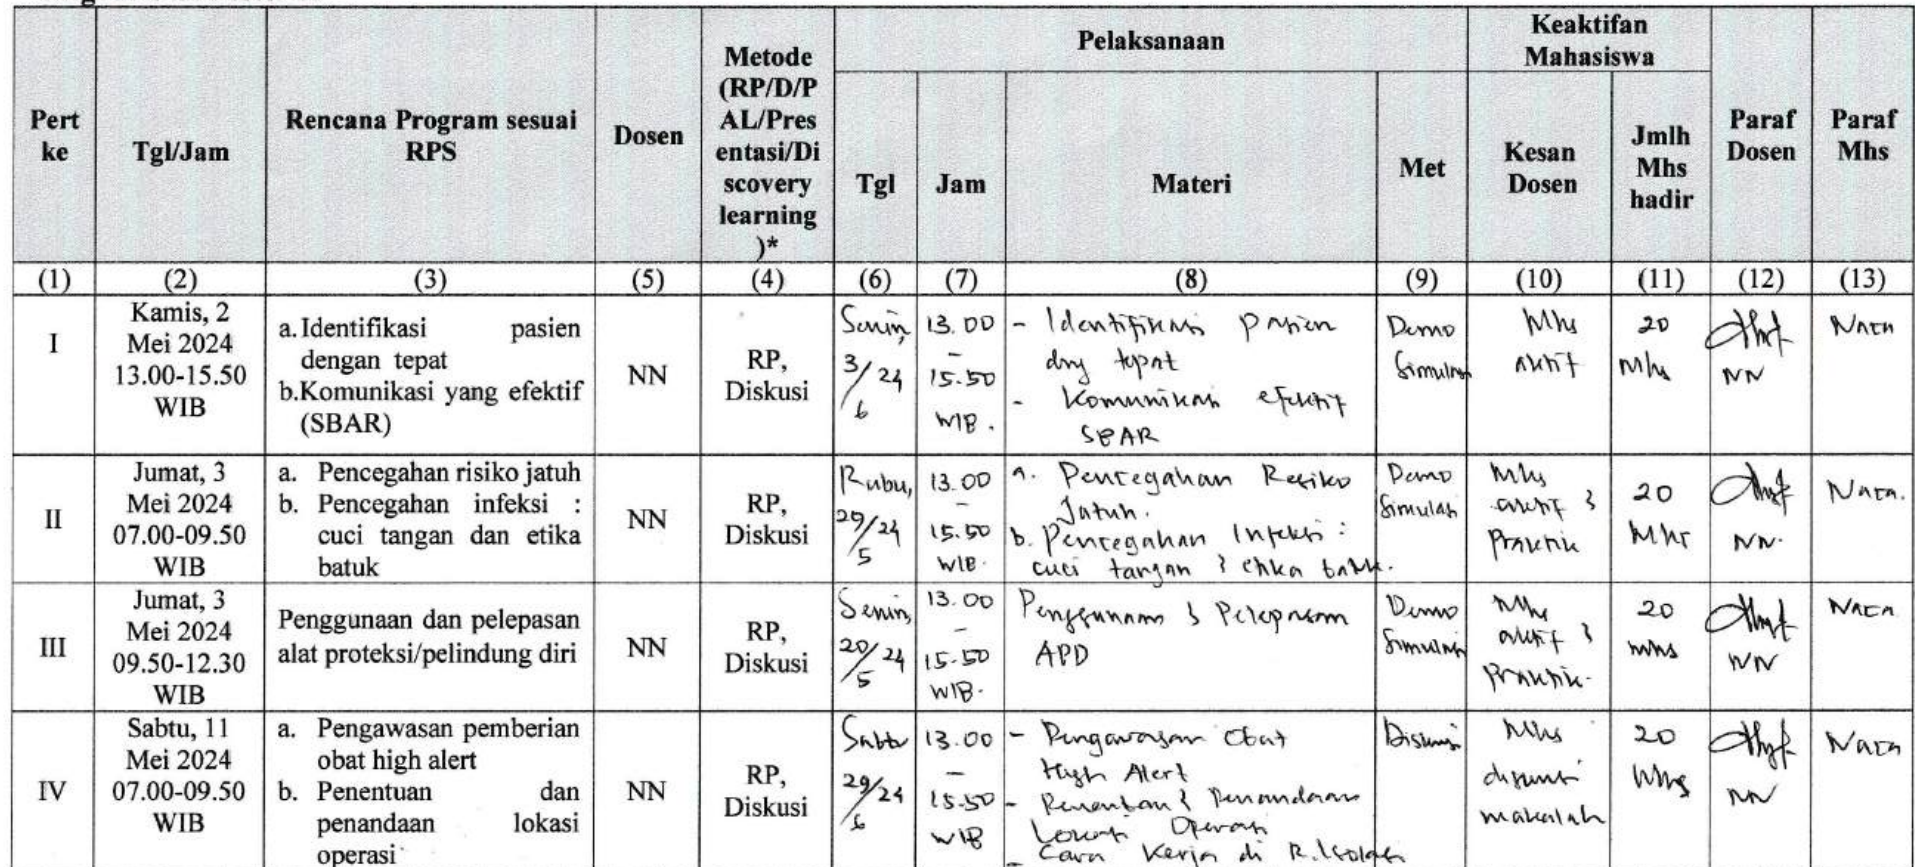 Pelaksanaan
Keaktifan
Mahasiswa
Pert
ke
Tgl/Jam
Rencana Program sesuai
RPS
Dosen
Metode
(RP/D/P
AL/Pres
entasi/Di
scovery
learning
)*
Tgl
Jam
Materi
Met
Kesan
Dosen
Jmlh
Mhs
hadir
Paraf
Dosen
Paraf
Mhs
(1) (2) (3) (5) (4) (6) (7) (8) (9) (10) (11) (12) (13)
I
Kamis, 2
Mei 2024
13.00-15.50
WIB
a.Identifikasi pasien
dengan tepat
b.Komunikasi yang efektif
(SBAR)
NN
RP,
Diskusi
Senin,
3/24
6
13.00
-
15.50
WIB.
- Identifikasi pasien
dng tepat
- Komunikasi efektif
SBAR
Demo
Simulasi
Mhs
aktif
20
Mhs
NN
Nata
II
Jumat, 3
Mei 2024
07.00-09.50
WIB
a. Pencegahan risiko jatuh
b. Pencegahan infeksi :
cuci tangan dan etika
batuk
NN
RP,
Diskusi
Rabu,
29/24
5
13.00
-
15.50
WIB.
a. Pencegahan Resiko
Jatuh.
b. Pencegahan Infeksi :
cuci tangan & etika batuk.
Demo
Simulasi
Mhs
aktif &
Praktik
20
Mhs
NN.
Nata.
III
Jumat, 3
Mei 2024
09.50-12.30
WIB
Penggunaan dan pelepasan
alat proteksi/pelindung diri
NN
RP,
Diskusi
Senin,
20/24
5
13.00
-
15.50
WIB.
Penggunaan & Pelepasan
APD
Demo
Simulasi
Mhs
aktif &
Praktik.
20
mhs
NN
Nata
IV
Sabtu, 11
Mei 2024
07.00-09.50
WIB
a. Pengawasan pemberian
obat high alert
b. Penentuan dan
penandaan lokasi
operasi
NN
RP,
Diskusi
Sabtu
29/24
6
13.00
-
15.50
WIB
- Pengawasan Obat
High Alert
- Penentuan & Penandaan
Lokasi Operasi
- Cara Kerja di R. Isolasi
Diskusi
Mhs
diskusi
makalah
20
Mhs
NN
Nata